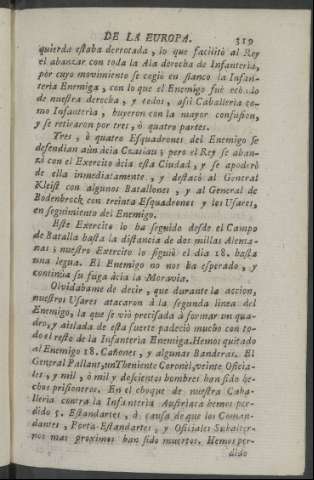 DE LA EUROPA. 319
quierda estaba derrotada, lo que facilitò al Rey
el abanzar con toda la Ala derecha de Infanteria,
por cuyo movimiento se cogiò en flanco la Infan-
teria Enemiga, con lo que el Enemigo fuè echado
de nuestra derecha, y todos, assi Caballeria co-
mo Infanteria, huyeron con la mayor confusion,
y se retiraron por tres, ò quatro partes.
Tres, ò quatro Esquadrones del Enemigo se
defendian aùn àcia Czaslau; pero el Rey se aban-
zò con el Exercito àcia esta Ciudad, y se apoderò
de ella inmediatamente, y destacò al General
Kleist con algunos Batallones, y al General de
Bodenbrock con treinta Esquadrones y los Usares,
en seguimiento del Enemigo.
Este Exercito lo ha seguido desde el Campo
de Batalla hasta la distancia de dos millas Alema-
nas; nuestro Exercito lo siguiò el dia 18. hasta
una legua. El Enemigo no nos ha esperado, y
continùa su fuga àcia la Moravia.
Olvidabame de decir, que durante la accion,
nuestros Usares atacaron à la segunda linea del
Enemigo, la que se viò precisada à formar un qua-
dro, y aislada de esta suerte padeciò mucho con to-
do el resto de la Infanteria Enemiga. Hemos quitado
al Enemigo 18. Cañones, y algunas Banderas. El
General Pallant, un Theniente Coronèl, veinte Oficia-
les, y mil, ò mil y doscientos hombres han sido he-
chos prisioneros. En el choque de nuestra Caba-
lleria contra la Infanteria Austriaca hemos per-
dido 5. Estandartes, à causa de que los Coman-
dantes, Porta-Estandartes, y Oficiales Subalter-
nos mas proximos han sido muertos. Hemos per-
dido